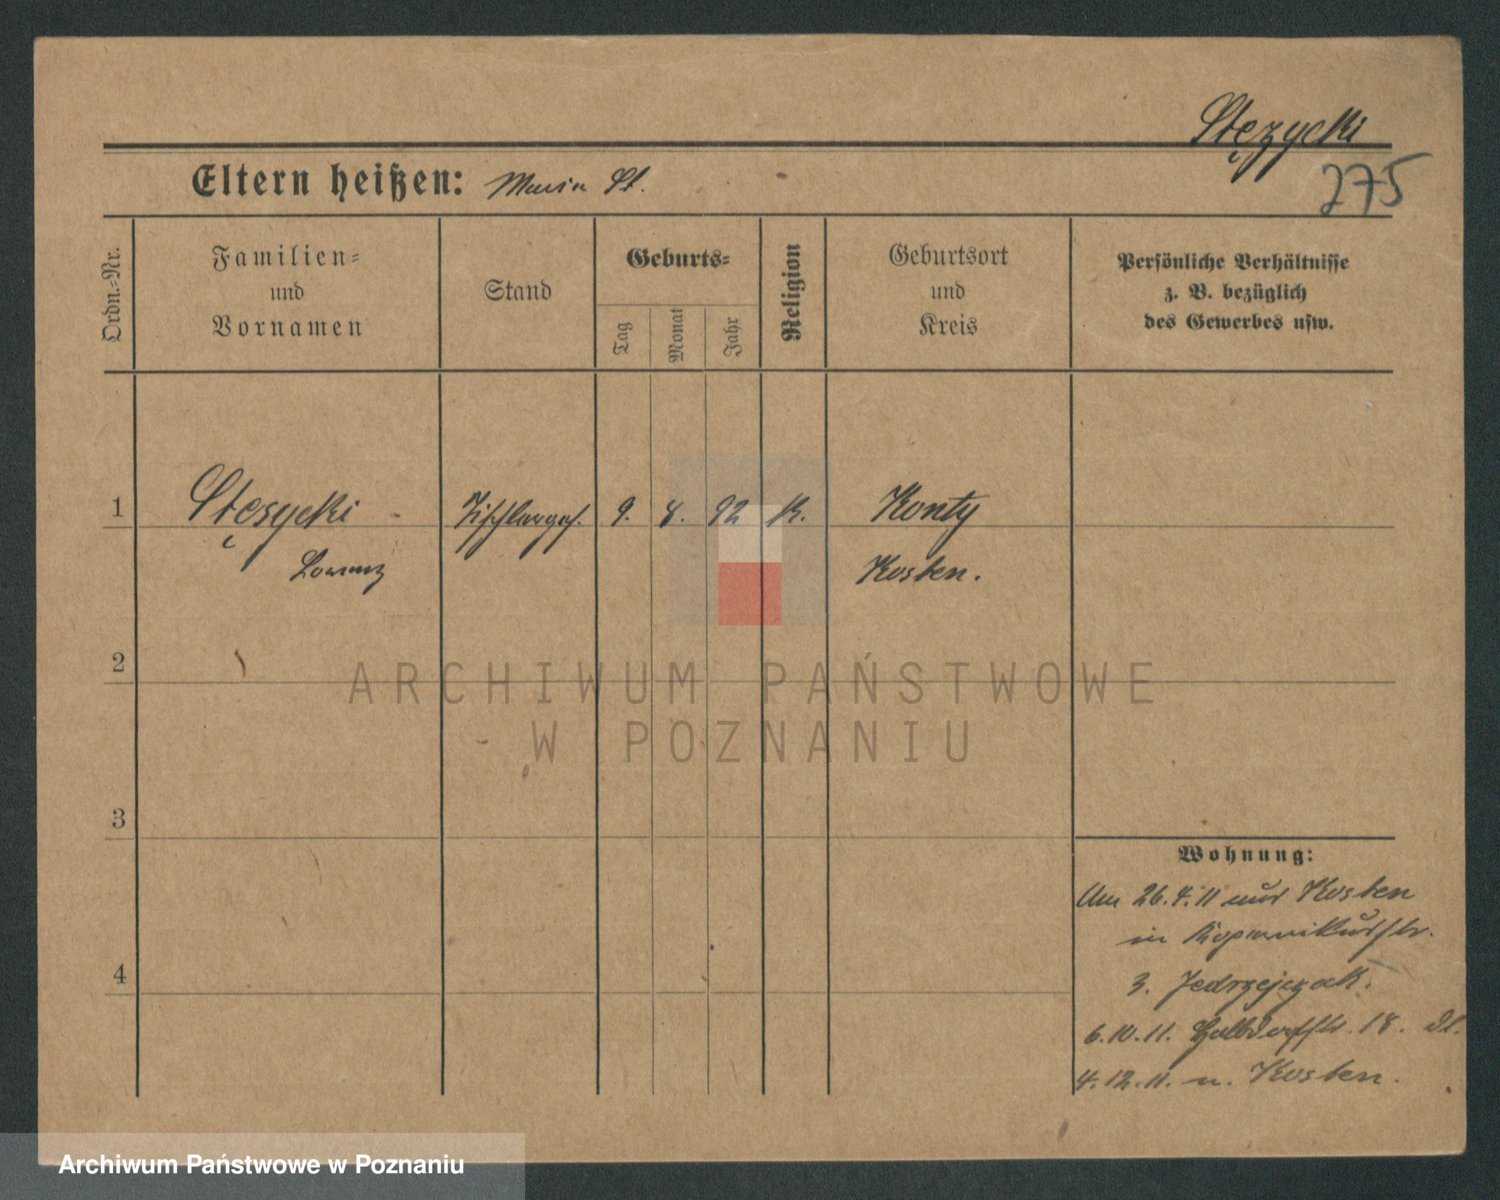 Stęzycki
275
Eltern heißen: Maria St.
Ordn.-Nr.
Familien-
und
Vornamen
Stand
Geburts-
Tag
Monat
Jahr
Religion
Geburtsort
und
Kreis
Persönliche Verhältnisse
z. B. bezüglich
des Gewerbes usw.
1 Stęsycki Tischlerges. 9. 8. 92 K. Konty
Lorenz Kosten.
2
3
4
Wohnung:
Am 26.4.11 aus Kosten
in Kopernikusstr.
3. Jedrzejczak.
6.10.11. Halbdorfstr. 18.
4.12.11. n. Kosten.
ARCHIWUM PAŃSTWOWE
W POZNANIU
Archiwum Państwowe w Poznaniu